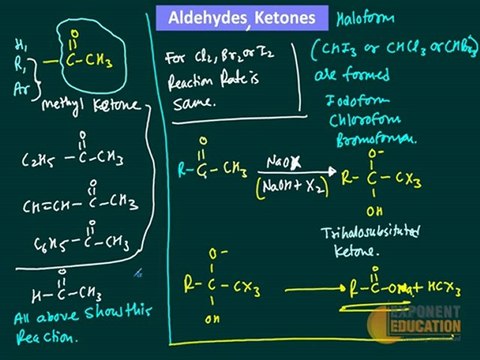 Aldehydes, Ketones
H,
R,
Ar
O
C-CH3
methyl Ketone
O
C2H5-C-CH3
O
CH=CH-C-CH3
O
C6H5-C-CH3
O
H-C-CH3
All above Show this
Reaction.
For Cl2, Br2 or I2
Reaction Rate is
Same.
Haloform
(CHI3 or CHCl3 or CHBr3)
are formed
Iodoform
Chloroform
Bromoform
O
R-C-CH3
NaOX
(NaOH + X2)
O-
R-C-CX3
OH
Trihalosubstituted
Ketone.
O-
R-C-CX3
OH
O
R-C-ONa + HCX3
EXPONENT
EDUCATION